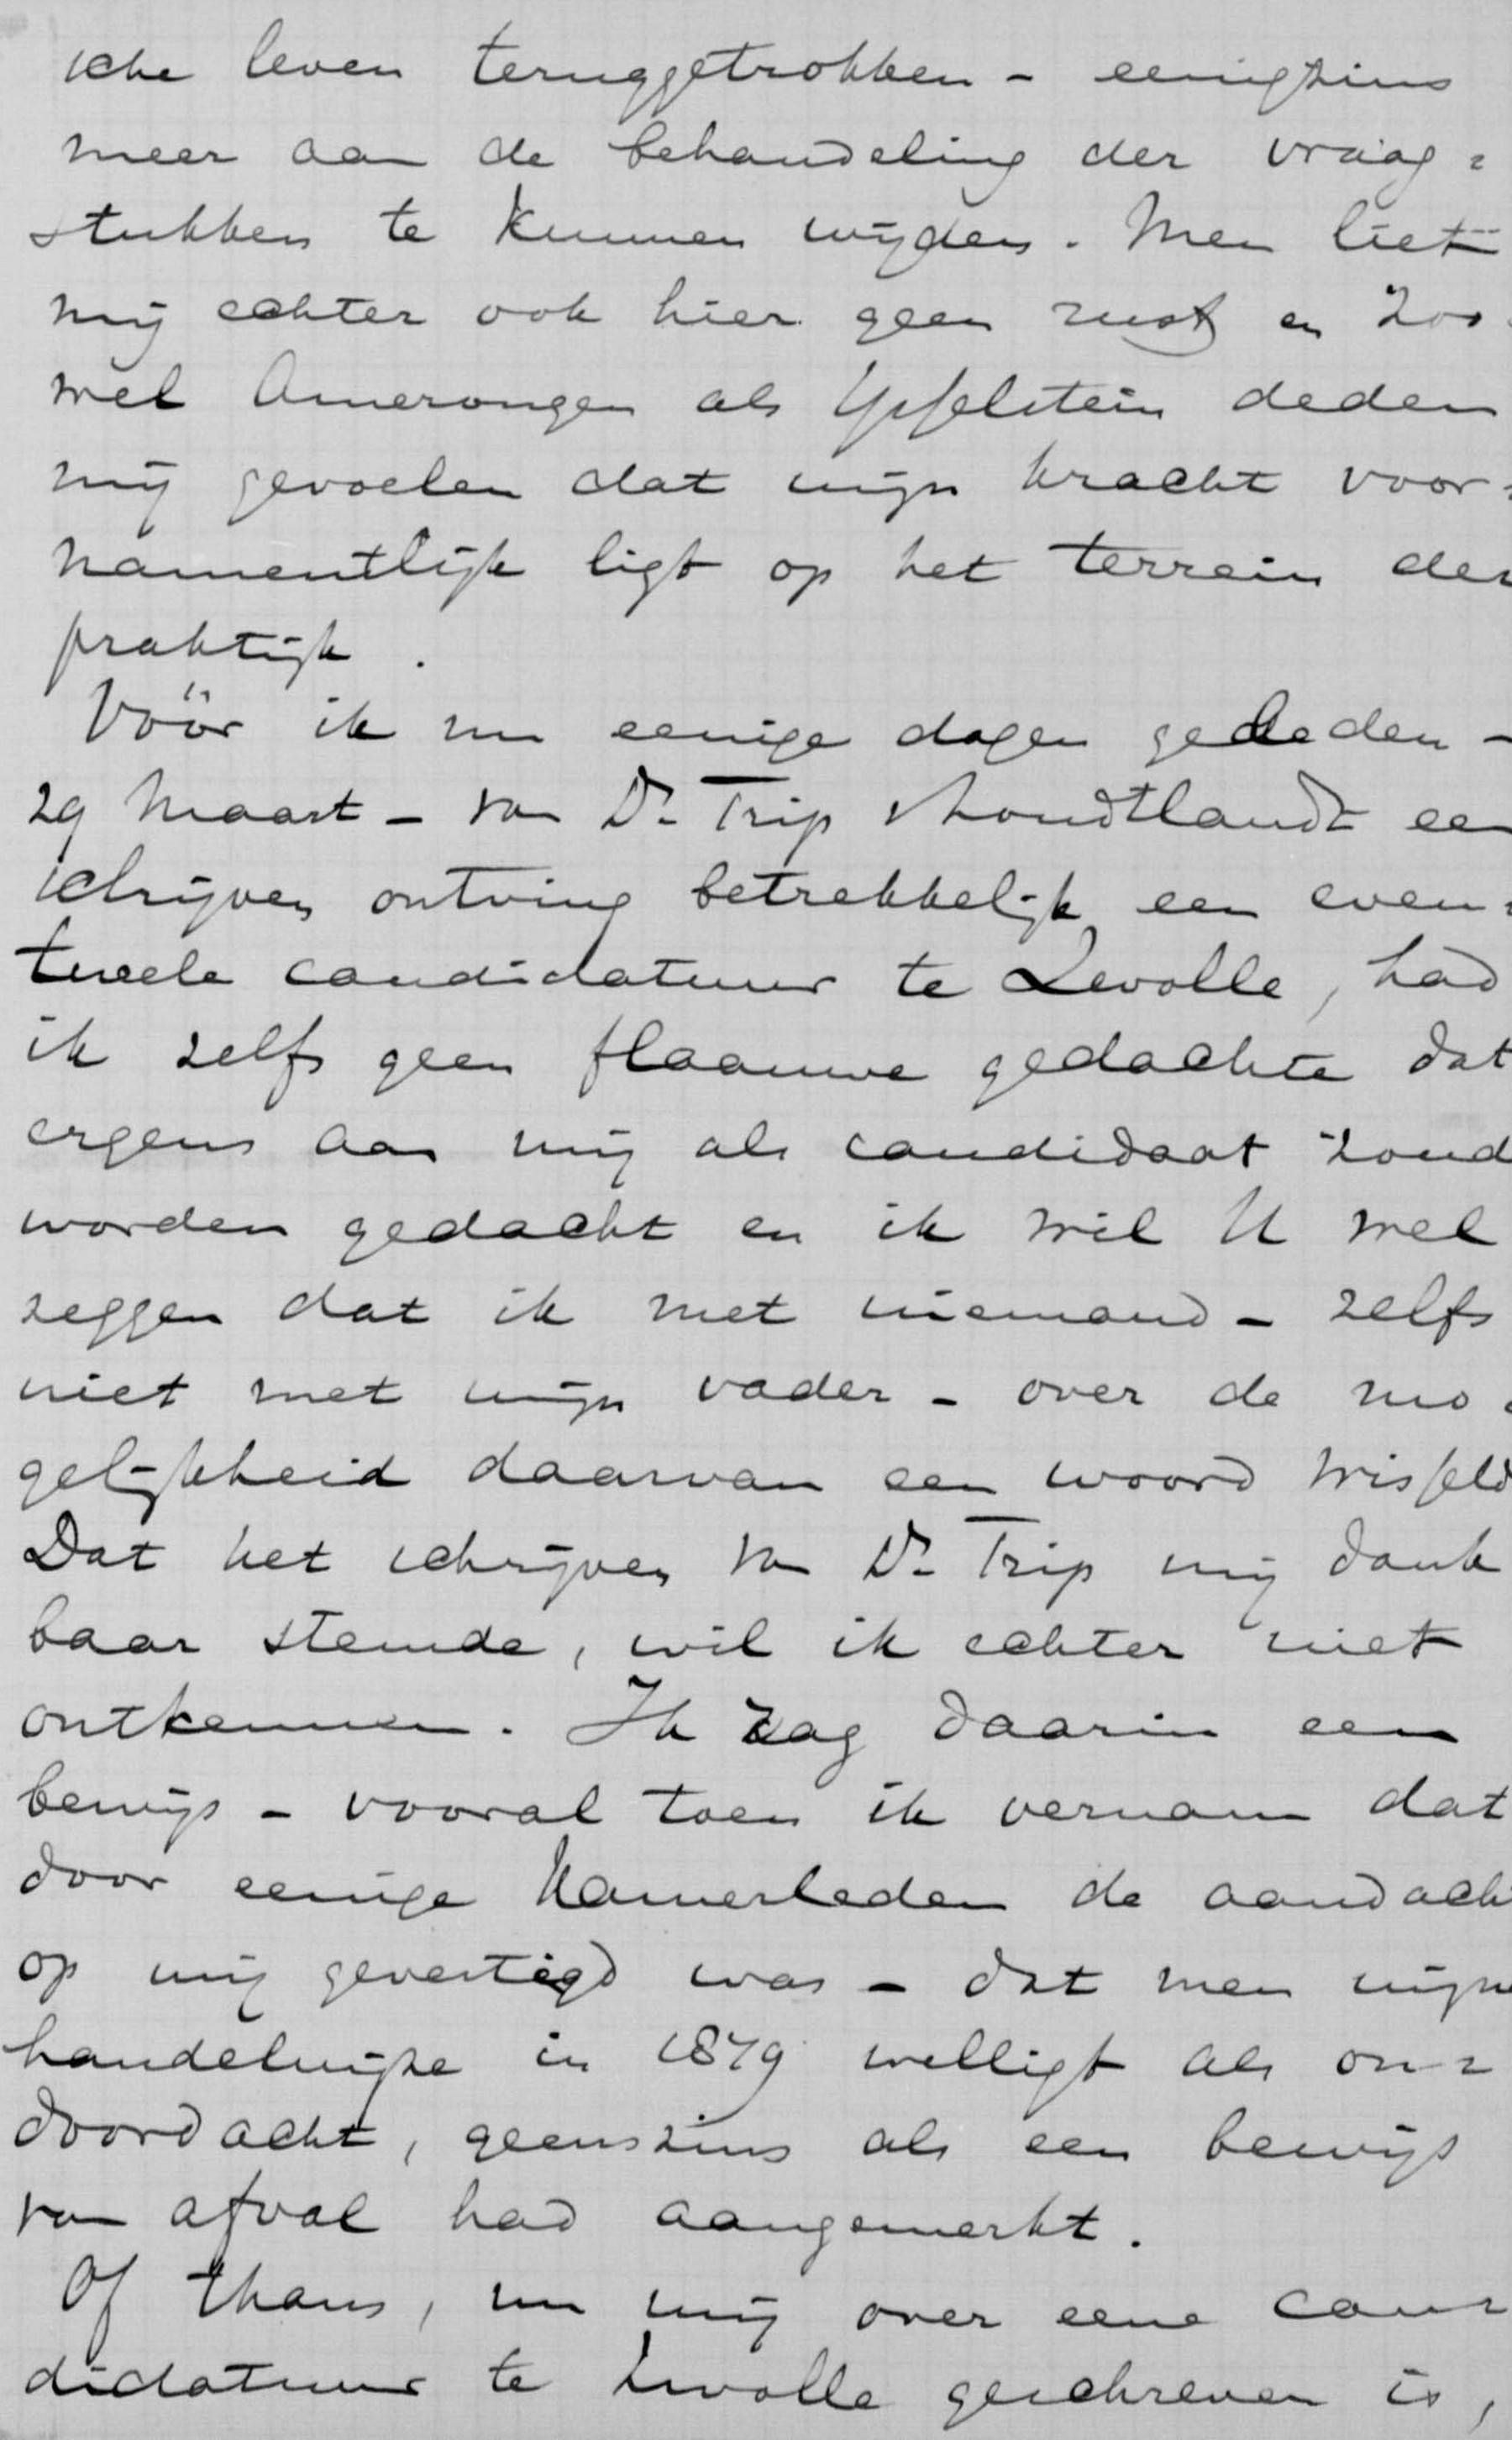 sche leven teruggetrokken - eenigzins
meer aan de behandeling der vraag=
stukken te kunnen wijden. Men liet
mij echter ook hier geen rust en zoo
wel Amerongen als Ysselstein deden
mij gevoelen dat mijn kracht voor=
namentlijk ligt op het terrein der
praktijk.
Vóór ik nu eenige dagen geleden -
29 Maart - van Dr Trip een
schrijven ontving betrekkelijk een even=
tueele candidatuur te Zwolle, had
ik zelfs geen flaauwe gedachte dat
ergens aan mij als candidaat zoud
worden gedacht en ik wil U wel
zeggen dat ik met niemand - zelfs
niet met mijn vader - over de mo=
gelijkheid daarvan een woord wisseld
Dat het schrijven van Dr Trip mij dank
baar stemde, wil ik echter niet
ontkennen. Ik zag daarin een
bewijs - vooral toen ik vernam dat
door eenige Kamerleden de aandach
op mij gevestigd was - dat men mijne
handelwijze in 1879 welligt als on=
doordacht, geenszins als een bewijs
van afval had aangemerkt.
Of thans, nu mij over eene can=
didatuur te Zwolle geschreven is,